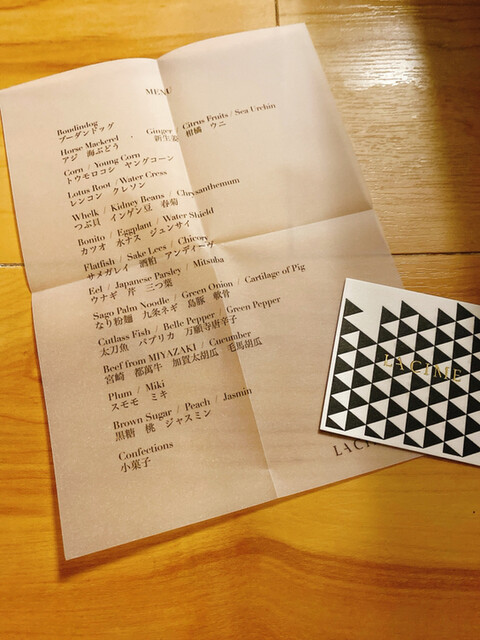 MENU
Boudindog
ブーダンドッグ
Horse Mackerel Ginger Citrus Fruits / Sea Urchin
アジ 海ぶどう 新生姜 柑橘 ウニ
Corn / Young Corn
トウモロコシ ヤングコーン
Lotus Root / Water Cress
レンコン クレソン
Whelk / Kidney Beans / Chrysanthemum
つぶ貝 インゲン豆 春菊
Bonito / Eggplant / Water Shield
カツオ 水ナス ジュンサイ
Flatfish / Sake Lees / Chicory
サメガレイ 酒粕 アンディーヴ
Eel / Japanese Parsley / Mitsuba
ウナギ 芹 三つ葉
Sago Palm Noodle / Green Onion / Cartilage of Pig
なり粉麺 九条ネギ 島豚 軟骨
Cutlass Fish / Belle Pepper / Green Pepper
太刀魚 パプリカ 万願寺唐辛子
Beef from MIYAZAKI / Cucumber
宮崎 都萬牛 加賀太胡瓜 毛馬胡瓜
Plum / Miki
スモモ ミキ
Brown Sugar / Peach / Jasmin
黒糖 桃 ジャスミン
Confections
小菓子
LACIME